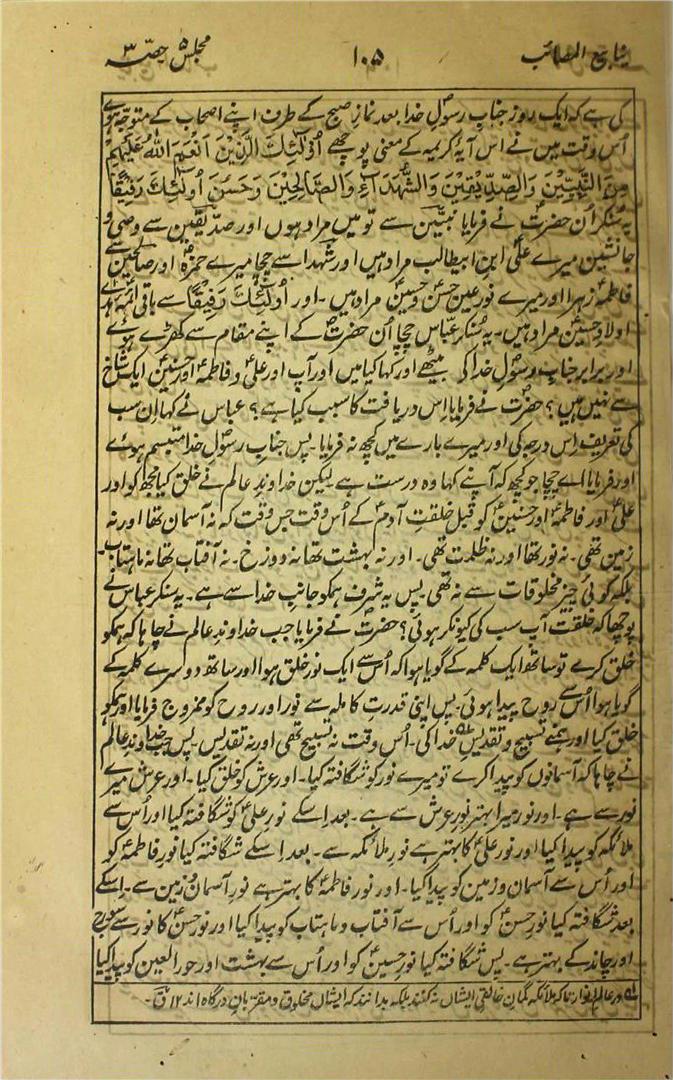 ینابیع المصائب ۱۰۵ مجلس ۵ حصہ ۳
کی ہے کہ ایک روز جناب رسولؐ خدا بعد نماز صبح کے طرف اپنے اصحاب کے متوجّہ ہوے
اُس وقت مین نے اس آیۂ کریمہ کے معنی پوچھے اُولٰٓئِكَ الَّذِیْنَ اَنْعَمَ اللّٰهُ عَلَیْهِمْ
مِنَ النَّبِیِّیْنَ وَالصِّدِّیْقِیْنَ وَالشُّهَدَآءِ وَالصَّالِحِیْنَ وَحَسُنَ اُولٰٓئِكَ رَفِیْقًا
یہ سُنکر اُن حضرتؐ نے فرمایا نبیّین سے تو میں مراد ہوں اور صدّیقین سے وصی و
جانشین میرے علیؑ ابن ابیطالب مراد ہیں اور شہدا سے چچا میرے حمزہؑ اور صالحین سے
فاطمہؑ زہرا اور میرے نور عین حسنؑ و حسینؑ مراد ہیں ۔ اور اُولٰٓئِكَ رَفِیْقًا سے باقی ائمہؑ ہدے
اولاد حسینؑ مراد ہیں ۔ یہ سُنکر عبّاس چچا اُن حضرتؐ کے اپنے مقام سے کھڑے ہوے
اور برابر جناب رسولؐ خدا کی بیٹھے اور کہا کیا میں اور آپ اور علیؑ و فاطمہؑ اور حسنینؑ ایک شاخ
سے نہیں ہیں ؟ حضرتؐ نے فرمایا اِس دریافت کا سبب کیا ہے ؟ عباس نے کہا اِن سب
کی تعریف اِس درجہ کی اور میرے بارے میں کچھ نہ فرمایا ۔ پس جناب رسولؐ خدا متبسم ہوئے
اور فرمایا اے چچا جو کچھ کہ آپنے کہا وہ درست ہے لیکن خداوند عالم نے خلق کیا مجھ کو اور
علیؑ اور فاطمہؑ اور حسنینؑ کو قبل خلقت آدمؑ کے اُس وقت جس وقت کہ نہ آسمان تھا اور نہ
زمین تھی ۔ نہ نور تھا اور نہ ظلمت تھی ۔ اور نہ بہشت تھا نہ دوزخ ۔ نہ آفتاب تھا نہ ماہتاب
بلکہ کوئی چیز مخلوقات سے نہ تھی پس یہ شرف ہمکو جانب خدا سے ہے ۔ یہ سنکر عباس نے
پوچھا کہ خلقت آپ سب کی کیونکر ہوئی ؟ حضرتؐ نے فرمایا جب خداوند عالم نے چاہا کہ ہمکو
خلق کرے تو ساتھ ایک کلمہ کے گویا ہوا کہ اُس سے ایک نور خلق ہوا اور ساتھ دوسرے کلمہ کے
گویا ہوا اُس سے روح پیدا ہوئی ۔ پس اپنی قدرت کاملہ سے نور اور روح کو ممزوج فرمایا اور ہمکو
خلق کیا اور ہمنے تسبیح و تقدیس خدا کی ۔ اُس وقت نہ تسبیح تھی اور نہ تقدیس ۔ پس جب خداوند عالم
نے چاہا کہ آسمانوں کو پیدا کرے تو میرے نور کو شگافتہ کیا ۔ اور عرش کو خلق کیا ۔ اور عرش میرے
نور سے ہے ۔ اور نور میرا بہتر نور عرش سے ہے ۔ بعد اِسکے نور علیؑ کو شگافتہ کیا اور اُس سے
ملائکہ کو پیدا کیا اور نور علیؑ کا بہتر ہے نور ملائکہ سے ۔ بعد اِسکے شگافتہ کیا نور فاطمہؑ کو
اور اُس سے آسمان و زمین کو پیدا کیا ۔ اور نور فاطمہؑ کا بہتر ہے نور آسمان و زمین سے ۔ اِسکے
بعد شگافتہ کیا نور حسنؑ کو اور اُس سے آفتاب و ماہتاب کو پیدا کیا اور نور حسنؑ کا نور سے سورج
اور چاند کے بہتر ہے ۔ پس شگافتہ کیا نور حسینؑ کو اور اُس سے بہشت اور حور العین کو پیدا کیا
در عالم انوار تاکہ ملائکہ گمان خالقی ایشاں نہ کنند بلکہ بدانند کہ ایشاں مخلوق و مقرّبان درگاہ اند ۱۲